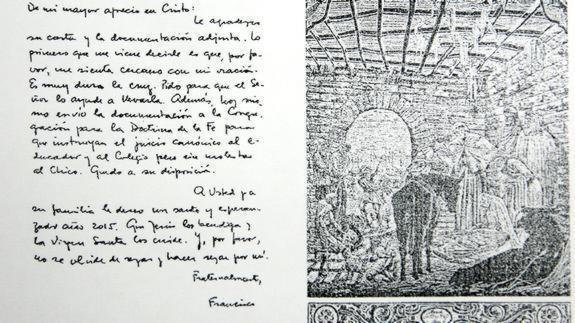 De mi mayor aprecio en Cristo:
Le agradezco
su carta y la documentación adjunta. Lo
primero que me viene decirle es que, por fa-
vor, me sienta cercano con mi oración.
Es muy dura la cruz. Pido para que el Se-
ñor lo ayude a llevarla. Además, hoy mis-
mo envío la documentación a la Congre-
gación para la Doctrina de la Fe para
que instruyan el juicio canónico al e-
ducador y al Colegio pero sin molestar
al Chico. Quedo a su disposición.
A Usted y a
su familia le deseo un santo y esperan-
zado año 2015. Que Jesús los bendiga y
la Virgen Santa los cuide. Y, por favor,
no se olvide de rezar y hacer rezar por mí.
Fraternalmente,
Francisco